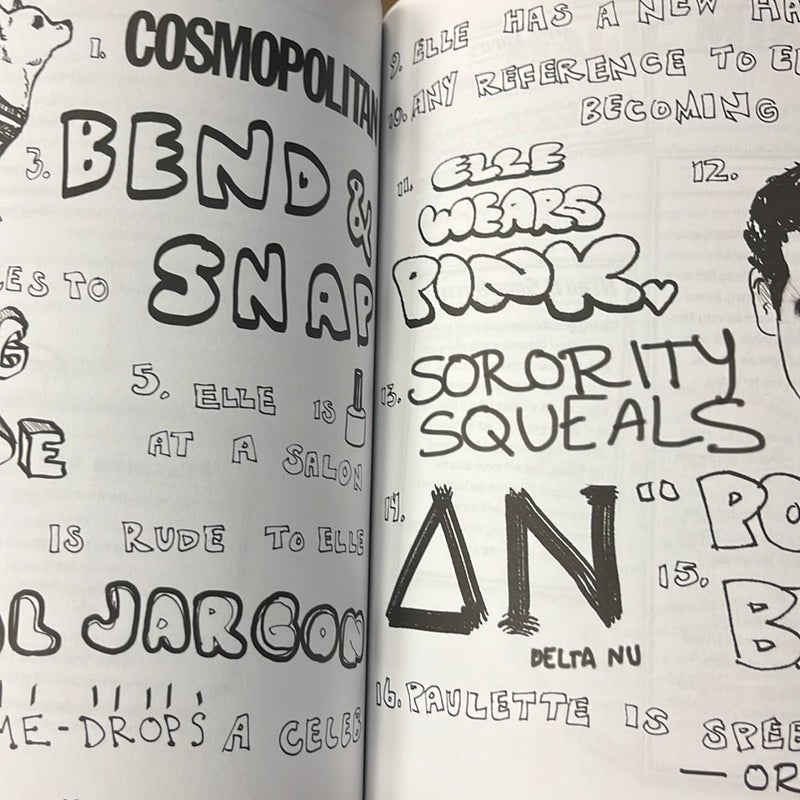 1. COSMOPOLITAN
3. BEND &
SNAP
TO
5. ELLE IS
AT A SALON
IS RUDE TO ELLE
JARGON
-DROPS A CELEB
9. ELLE HAS A NEW
10. ANY REFERENCE TO
BECOMING
11. ELLE
WEARS
PINK
12.
13. SORORITY
SQUEALS
14. ΔN
DELTA NU
15.
16. PAULETTE IS
— OR